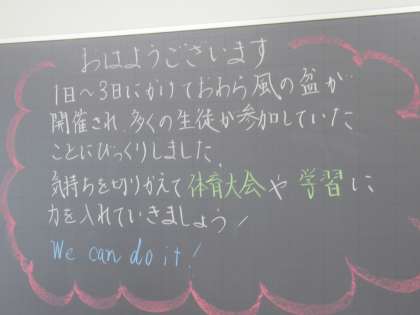 おはようございます
1日～3日にかけておわら風の盆が
開催され、多くの生徒が参加していた
ことにびっくりしました。
気持ちを切りかえて体育大会や学習に
力を入れていきましょう!
We can do it!